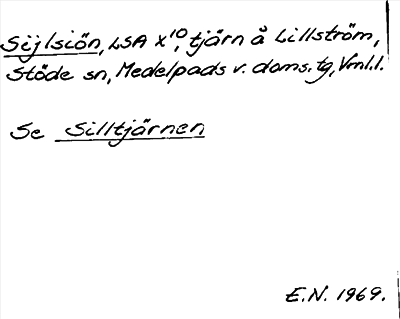 Sijlsiön, LSA X¹⁰, tjärn å Lillström,
Stöde sn, Medelpads v. doms. tg, Vrnl.l.
Se Silltjärnen
E.N. 1969.